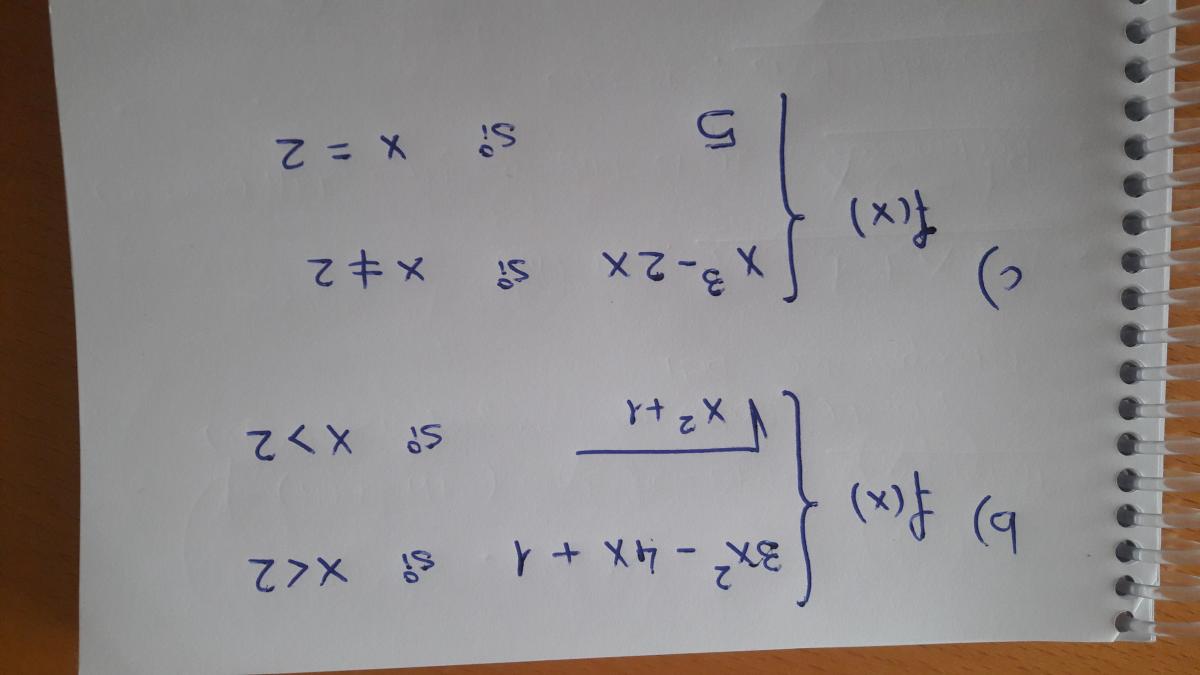 b) f(x) { 3x² - 4x + 1 si x < 2
√x² + 1 si x > 2
c) f(x) { x³ - 2x si x ≠ 2
5 si x = 2